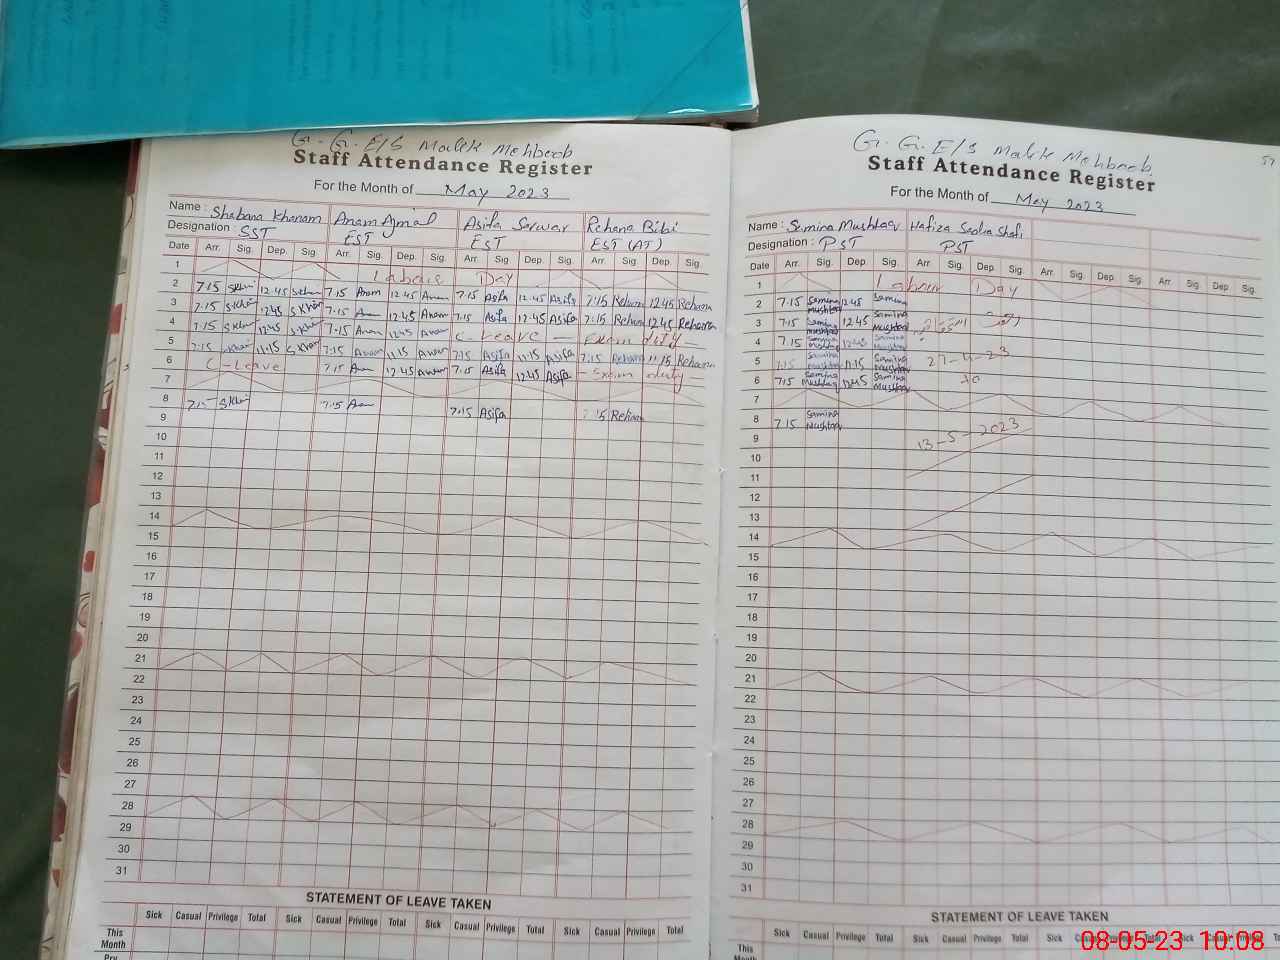 G. G. E/S Malik Mehboob
Staff Attendance Register
For the Month of May 2023
Name : Shabana Khanam Anam Ajmal Asifa Sarwar Rehana Bibi
Designation : SST EST EST EST (AT)
Date Arr. Sig. Dep. Sig. Arr. Sig. Dep. Sig. Arr. Sig. Dep. Sig. Arr. Sig. Dep. Sig.
1 Labour Day
2 7.15 S Khan 12.45 S Khan 7.15 Anam 12.45 Anam 7.15 Asifa 12.45 Asifa 7:15 Rehana 12.45 Rehana
3 7.15 S Khan 12.45 S Khan 7.15 Anam 12.45 Anam 7.15 Asifa 12.45 Asifa 7:15 Rehana 12.45 Rehana
4 7.15 S Khan 12.45 S Khan 7.15 Anam 12.45 Anam C-Leave — Exam duty —
5 7.15 S Khan 11.15 S Khan 7.15 Anam 11.15 Anam 7.15 Asifa 11.15 Asifa 7:15 Rehana 11:15 Rehana
6 C-Leave 7.15 Anam 12.45 Anam 7.15 Asifa 12.45 Asifa - Exam duty -
7
8 7.15 S Khan 7.15 Anam 7.15 Asifa 7:15 Rehana
9
10
11
12
13
14
15
16
17
18
19
20
21
22
23
24
25
26
27
28
29
30
31
STATEMENT OF LEAVE TAKEN
Sick Casual Privilege Total Sick Casual Privilege Total Sick Casual Privilege Total Sick Casual Privilege Total
This
Month
Prv
G. G. E/S Malik Mehboob
57
Staff Attendance Register
For the Month of May 2023
Name : Samina Mushtaq Hafiza Sadia Shafi
Designation : PST PST
Date Arr. Sig. Dep. Sig. Arr. Sig. Dep. Sig. Arr. Sig. Dep. Sig. Arr. Sig. Dep. Sig.
1 Labour Day
2 7.15 Samina Mushtaq 12.45 Samina Mushtaq
3 7.15 Samina Mushtaq 12.45 Samina Mushtaq
4 7.15 Samina Mushtaq 12.45 Samina Mushtaq
5 7.15 Samina Mushtaq 11.15 Samina Mushtaq 27-4-23
6 7.15 Samina Mushtaq 12.45 Samina Mushtaq to
7
8 7.15 Samina Mushtaq
9 13-5-2023
10
11
12
13
14
15
16
17
18
19
20
21
22
23
24
25
26
27
28
29
30
31
STATEMENT OF LEAVE TAKEN
Sick Casual Privilege Total Sick Casual Privilege Total Sick Casual Privilege Total Sick Casual
This
08-05-23 10:08